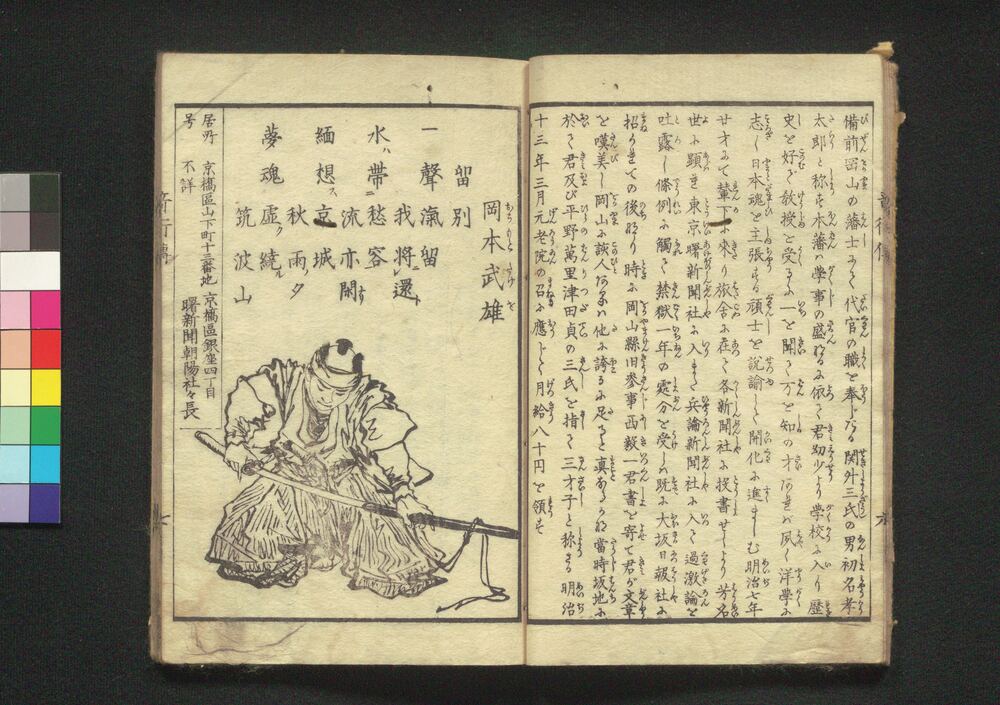 備前岡山の藩士にて代官の職を奉じたる関外三氏の男初名孝
太郎と称す本藩ハ学事の盛なるに依て君幼少より学校に入り歴
史を好き教授を受るに一を聞て万を知の才あれバ夙く洋学に
志し日本魂を主張する頑士を説諭して開化に進ましむ明治七年
廿才にて輦下に来り旅舎に在て各新聞社に投書せしより芳名
世に顕れ東京曙新聞社に入また兵論新聞社に入て過激論を
吐露し條例に觸て禁獄一年の處分を受しハ既に大坂日報社に
招かれての後なり時に岡山縣旧参事西毅一君書を寄て君が文章
を嘆美し岡山に談人あるハ他に誇るに足ると真なるかな當時坂地に
於て君及び平野萬里津田貞の三氏を指て三才子と称さる明治
十三年三月元老院の召に應じて月給八十円を領す
岡本武雄
留別
一聲滊留我将還
水帯愁容流亦閑
緬想京城秋雨夕
夢魂虚繞筑波山
居所 京橋區山下町十三番地 京橋區銀座四丁目
号 不詳 曙新聞朝陽社々長